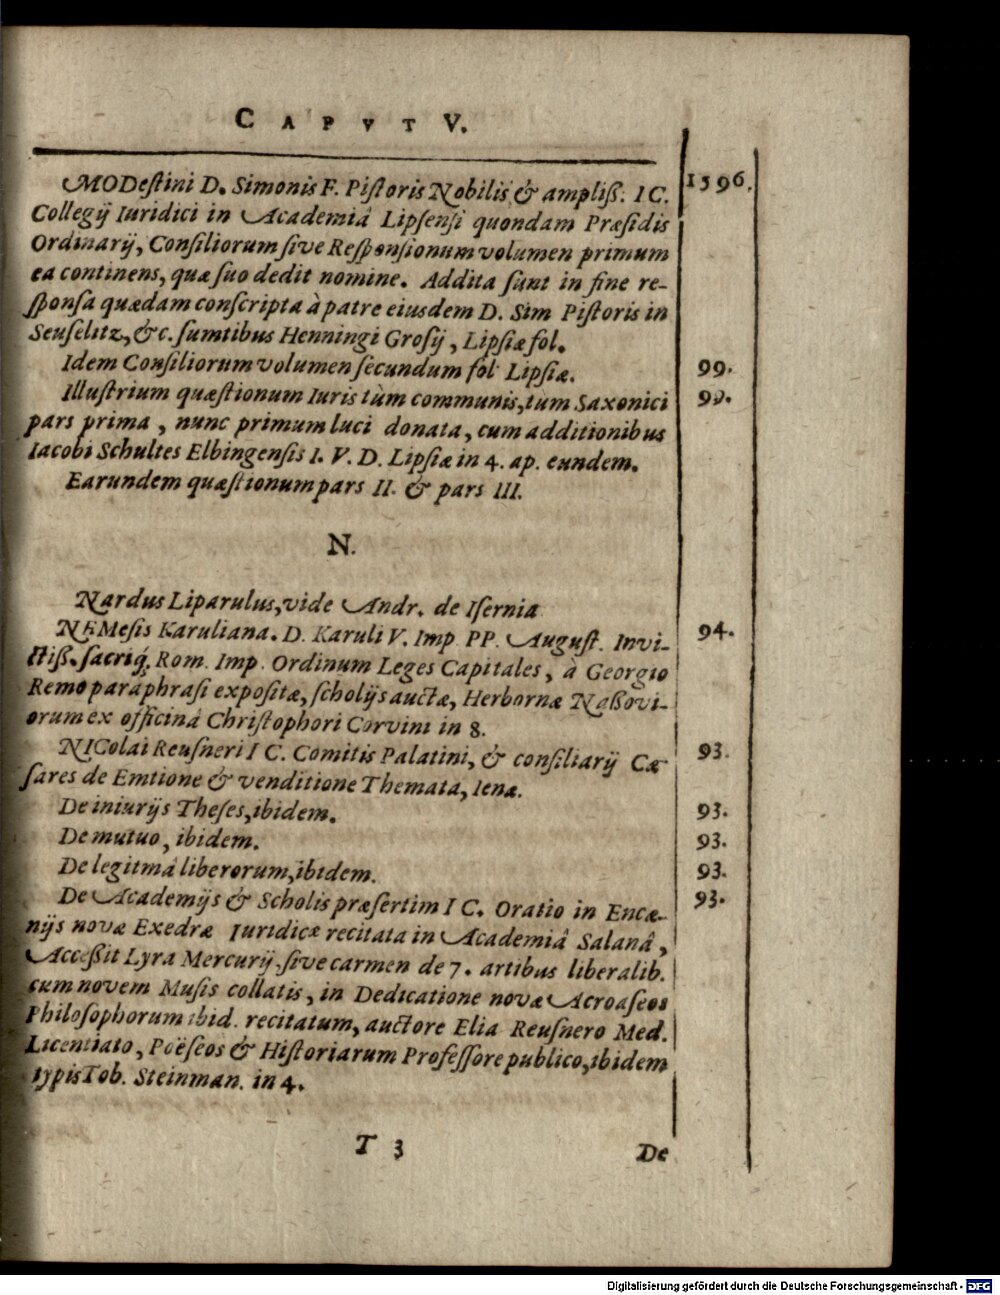 CAPVT V.
MODestini D. Simonis F. Pistoris Nobilis & ampliß: IC. 1596.
Collegij Iuridici in Academiâ Lipsensi quondam Præsidis
Ordinarij, Consiliorum sive Responsionum volumen primum
ea continens, quæ suo dedit nomine. Addita sunt in fine re-
sponsa quædam conscripta à patre eiusdem D. Sim Pistoris in
Seuselitz, &c. sumtibus Henningi Grosij, Lipsiæ fol.
Idem Consiliorum volumen secundum fol Lipsiæ. 99.
Illustrium quæstionum Iuris tùm communis, tum Saxonici 99.
pars prima, nunc primum luci donata, cum additionibus
Iacobi Schultes Elbingensis I. V. D. Lipsiæ in 4. ap. eundem.
Earundem quæstionum pars II. & pars III.
N.
Nardus Liparulus, vide Andr. de Isernia
NEMesis Karuliana. D. Karuli V. Imp PP. August. Invi- 94.
ctiß. sacriq́; Rom. Imp. Ordinum Leges Capitales, à Georgio
Remo paraphrasi expositæ, scholijs auctæ, Herbornæ Naßovi-
orum ex officinâ Christophori Corvini in 8.
NIColai Reusneri IC. Comitis Palatini, & consiliarij Cæ 93.
sares de Emtione & venditione Themata, Ienæ.
De iniurijs Theses, ibidem. 93.
De mutuo, ibidem. 93.
De legitmâ liberorum, ibidem. 93.
De Academijs & Scholis præsertim IC. Oratio in Encæ- 93.
nijs novæ Exedræ Iuridicæ recitata in Academiâ Salanâ,
Acceßit Lyra Mercurij, sive carmen de 7. artibus liberalib.
cum novem Musis collatis, in Dedicatione novæ Acroaseos
Philosophorum ibid. recitatum, auctore Elia Reusnero Med.
Licentiato, Poëseos & Historiarum Professore publico, ibidem
typis Tob. Steinman. in 4.
T 3 De
Digitalisierung gefördert durch die Deutsche Forschungsgemeinschaft - DFG